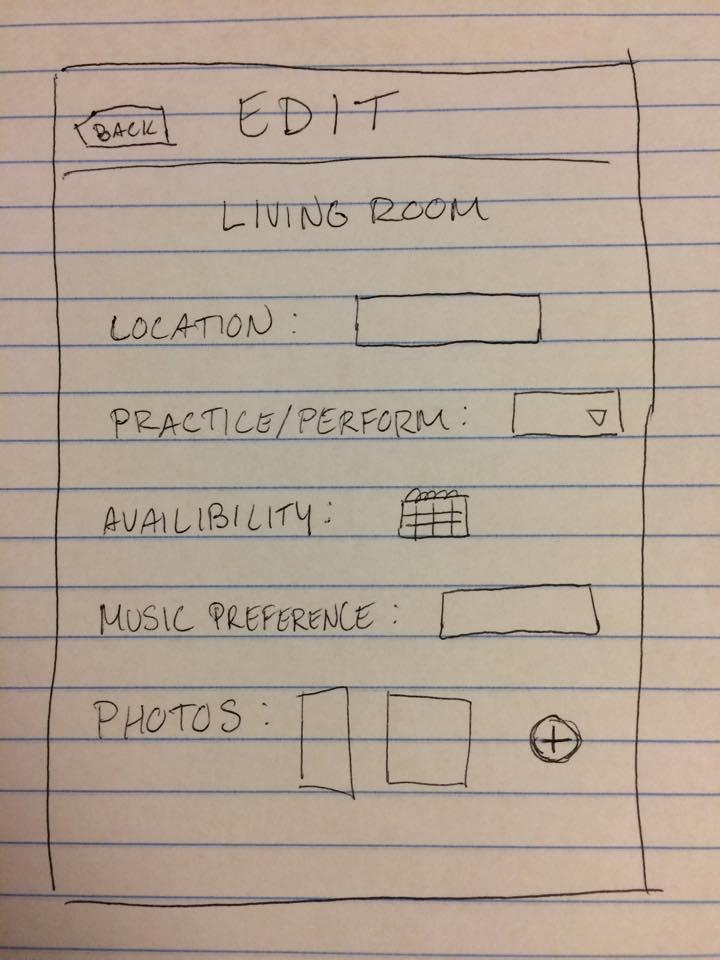 BACK EDIT
LIVING ROOM
LOCATION:
PRACTICE/PERFORM:
AVAILIBILITY:
MUSIC PREFERENCE:
PHOTOS: